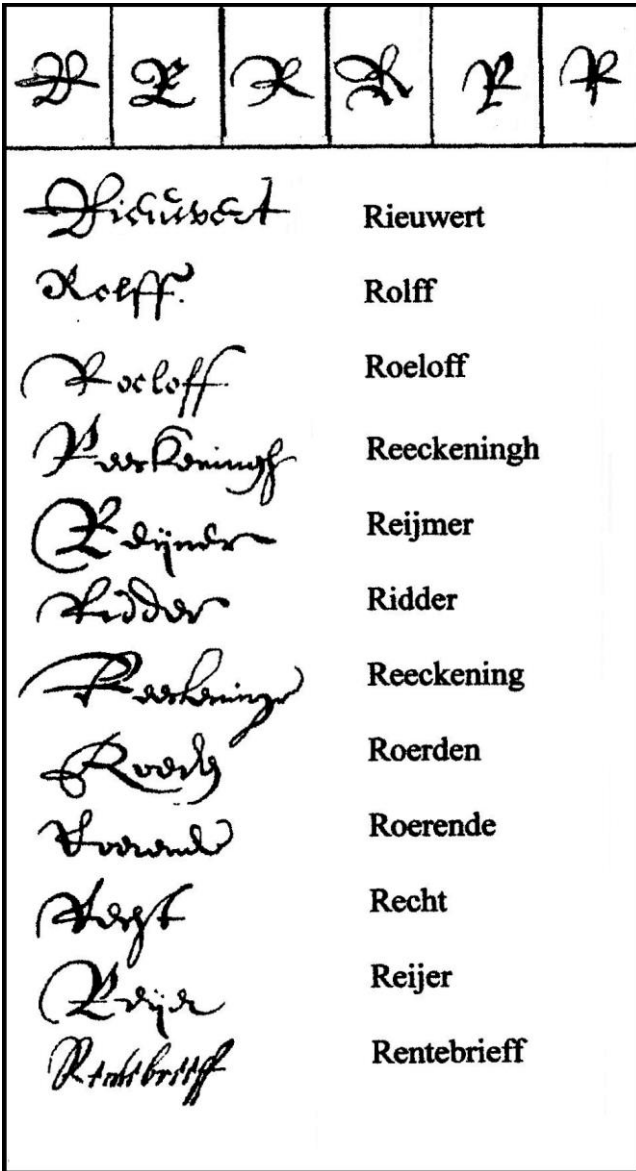 R R R R R R
Rieuwert Rieuwert
Rolff. Rolff
Roeloff Roeloff
Reeckeningh Reeckeningh
Reijmer Reijmer
Ridder Ridder
Reeckening Reeckening
Roerden Roerden
Roerende Roerende
Recht Recht
Reijer Reijer
Rentebrieff Rentebrieff